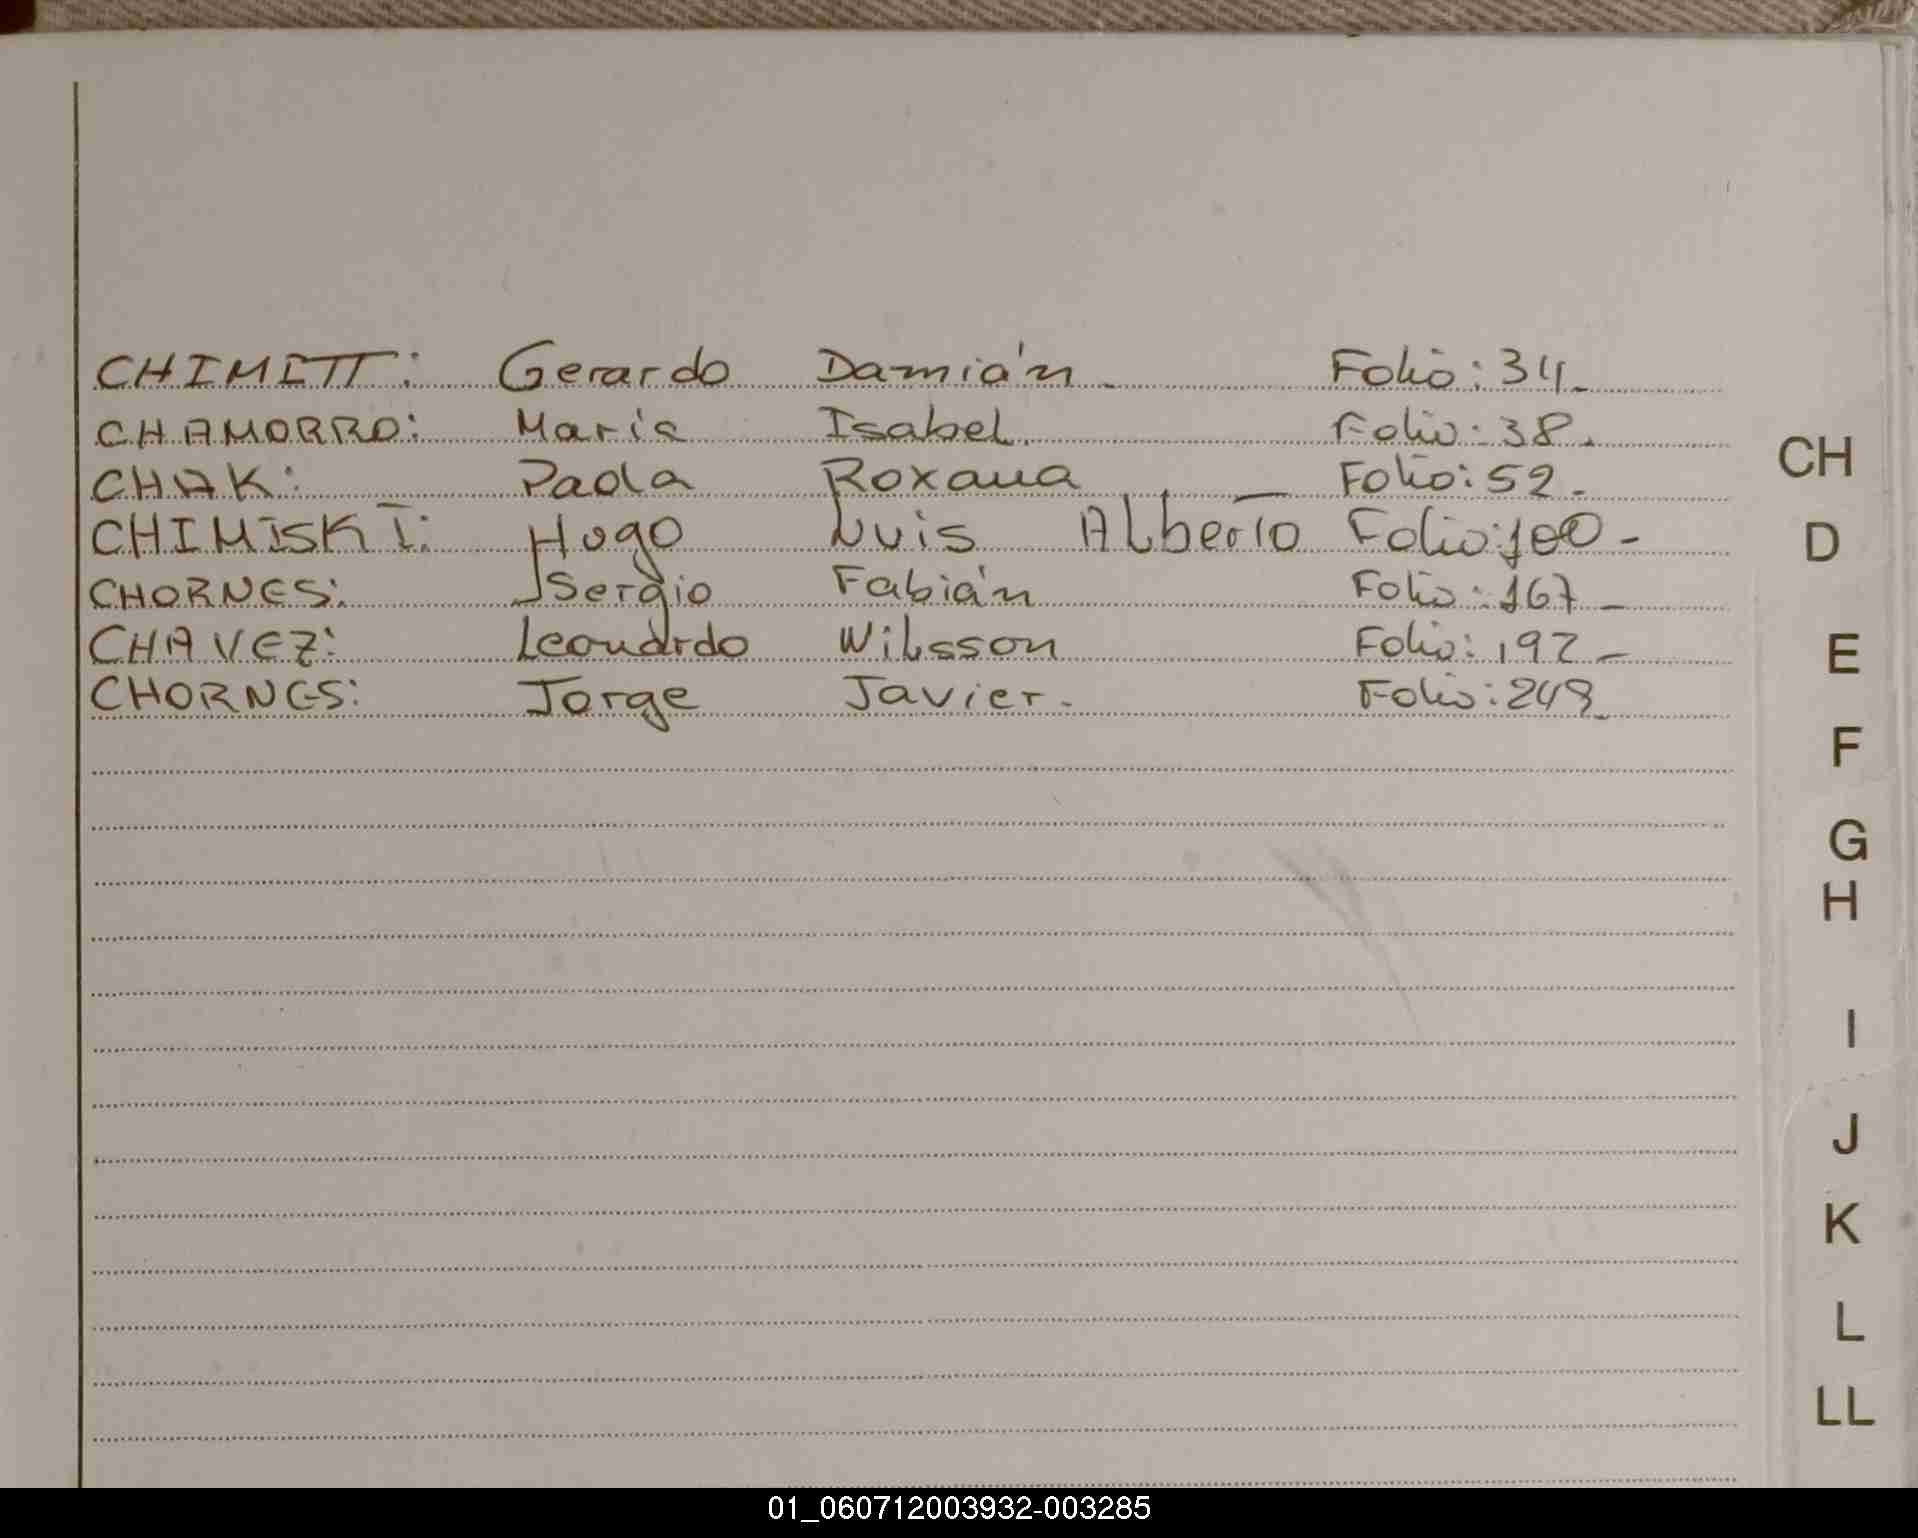 CHIMITT: Gerardo Damián. Folio: 34.
CHAMORRO: Maria Isabel. Folio: 38.
CHAK: Paola Roxana Folio: 52.
CHIMISKI: Hugo Luis Alberto Folio: 100-
CHORNES: Sergio Fabián Folio: 167-
CHAVEZ: Leonardo Wilsson Folio: 192-
CHORNES: Jorge Javier. Folio: 249
CH
D
E
F
G
H
I
J
K
L
LL
01_060712003932-003285